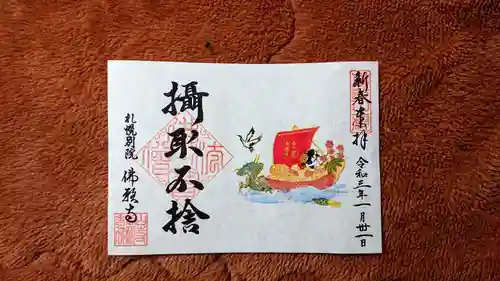 新春奉拝
令和三年一月卅一日
攝取不捨
札幌別院
佛願寺